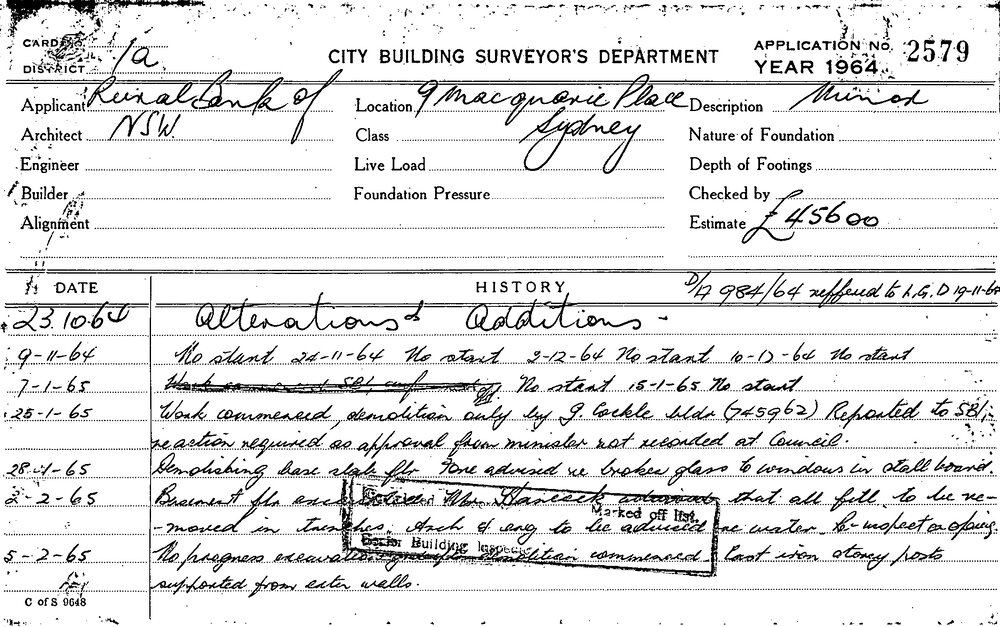 CARD No. 1a
DISTRICT
CITY BUILDING SURVEYOR'S DEPARTMENT
APPLICATION No. 2579
YEAR 1964
Applicant Rural Bank of
Location 9 Macquarie Place
Description Minor
Architect NSW
Class Sydney
Nature of Foundation
Engineer
Live Load
Depth of Footings
Builder
Foundation Pressure
Checked by
Alignment
Estimate £45600
DATE
HISTORY
984/64 reffered to L.G.D 19-11-64
23.10.64 Alterations & Additions -
9-11-64 No start 24-11-64 No start 2-12-64 No start 10-12-64 No start
7-1-65 Work commenced SBI No start 15-1-65 No start
25-1-65 Work commenced, demolition only by J. Cockle bldr (745962) Reported to SBI;
re action required as approval from minister not recorded at Council.
28-1-65 Demolishing base slab flr advised re broken glass to windows in stall board.
2-2-65 Basement flr Mr Hancock advised that all fill to be re-
-moved in trenches. Arch & eng to be advised re water. Re-inspect
Marked off list.
Senior Building Inspector
5-2-65 No progress excavation demolition commenced. Cast iron storey posts
supported from exter walls.
C of S 9648